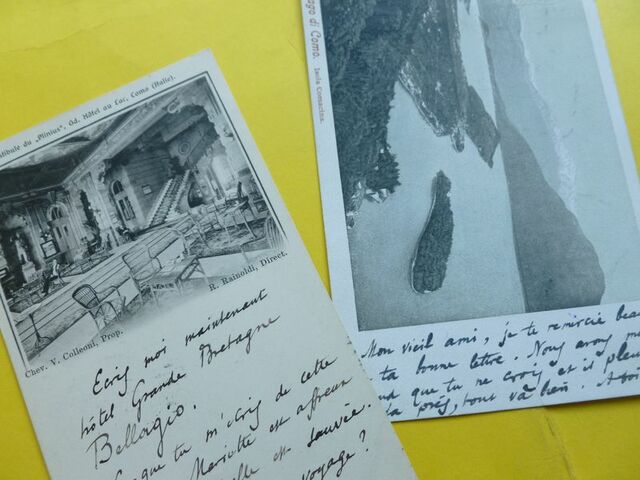 Vestibule du „Plinius", Gd. Hôtel au Lac, Como (Italie).
R. Rainoldi, Direct.
Chev. V. Colleoni, Prop.
Ecris moi maintenant
hôtel Grande Bretagne
Bellagio.
que tu m'écris de cette
Mariette est affreux
elle est sauvée.
voyage?
Lago di Como.
Isola Comacina.
Mon vieil ami, je te remercie
ta bonne lettre. Nous avons
que tu ne crois et il
près, tout va bien.